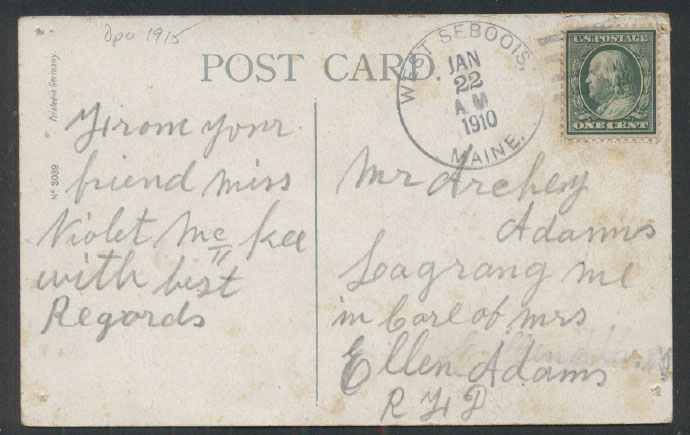 Dpo 1915
POST CARD.
Printed in Germany.
Nº 3039
WEST SEBOOIS,
JAN
22
A M
1910
MAINE.
U.S. POSTAGE
ONE CENT
From your
friend miss
Violet Mc Kee
with best
Regords
Mr Archey
Adams
Lagrang Me
in Care of mrs
Ellen Adams
R F D